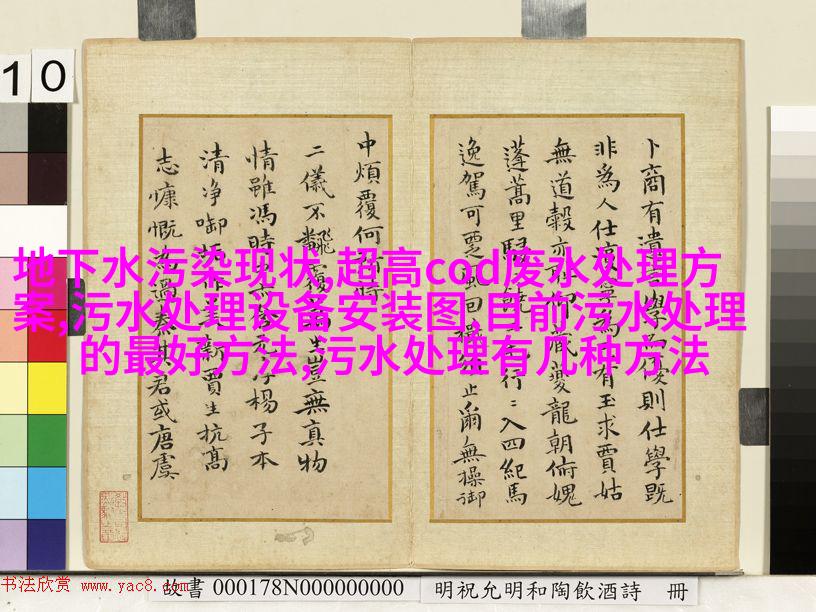 10
地下水污染现状,超高cod废水处理方
案,污水处理设备安装图,目前污水处理
的最好方法,污水处理有几种方法
卜商有遺 學 則仕學既
非為人仕 寧為 有玉求賈姑
無道穀亦 仰 夔龍朝俯媿
蓬蒿里 行二入四紀馬
逸駕可 回 止爾無操御
中煩覆何 時
二儀不 覆 生豈無真物
情雖馮時 楊子本
清净啣 美新賈生抗高
志慷慨為過秦 君或唐虞
书法欣赏 www.yac8.com
故書 000178N000000000
明祝允明和陶飲酒詩 冊